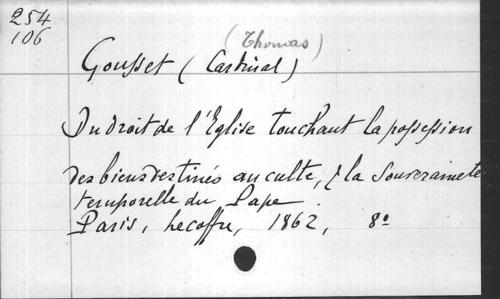 254
106
(Thomas)
Gousset (Cardinal)
Du droit de l'Eglise touchant la possession
des biens destinés au culte, & la Souveraineté
temporelle du Pape
Paris, Lecoffre, 1862, 8º